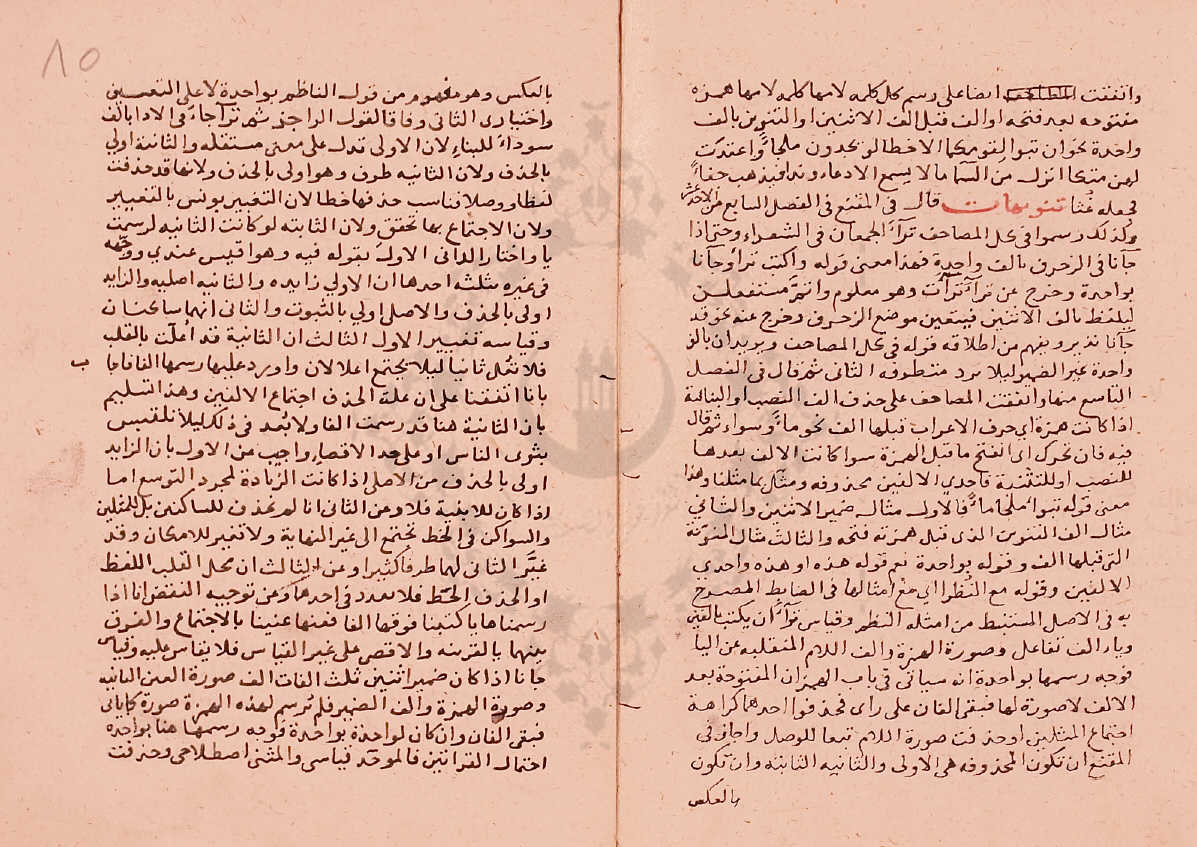 واتفقت المصاحف ايضا على رسم كل كلمه لامها كلمه لامها همزه
مفتوحه بعد فتحه او الف قبل الف الاثنين او التنوين بالف
واحدة نحو ان تبوا لقومكما الاخطا لو يجدون ملجاً واعتدت
لهن متكا انزل من السما ما لا يسمع الا دعا وندا فيذهب جفاً
فجعله غثا تنبيهات قال في المقنع في الفصل السابع من الاحد
وكذلك رسموا في كل المصاحف ترآ الجمعان في الشعراء وحتى اذا
جآنا في الزخرف بالف واحدة فهذا معنى قوله واكتب ترآ وجآنا
بواحدة وخرج عن ترآ ترآت وهو معلوم وانما مستفعلن
بلفظ بالف الاثنين فيتعين موضع الزخرف وخرج عنه نحو قد
جآنا نذير ويفهم من اطلاقه قوله في كل المصاحف ويريد ان بالف
واحدة غير الضمير ليلا يرد متطرفه الثانى ثم قال في الفصل
التاسع منها واتفقت المصاحف على حذف الف النصب او البنائية
اذا كانت همزة اى حرف الاعراب قبلها الف نحو مآء وسواء ثم قال
فيه فان تحرك اى الفتح ما قبل الهمزة سوا كانت الالف بعدها
للنصب او للتثنية فاحدي الالفين محذوفه ومثّل بما مثلنا وهذا
معنى قوله تبوا ملجا مآء فالاول مثال ضمير الاثنين والثاني
مثال الف التنوين الذى قبل همزته فتحه والثالث مثال المنونة
التى قبلها الف وقوله بواحدة نعم قوله هذه او هذه واحدي
الالفين وقوله مع النُظرا اي مع امثالها في الضابط المصرح
به في الاصل المستنبط من امثله النظم وقياس ترآء ان يكتب بالفين
ويا الف تفاعل وصورة الهمزة والف اللام المنقلبه عن اليا
فوجه رسمها بواحدة انه سياتى في باب الهمز ان المفتوحة بعد
الالف لا صورة لها فبقى الفان على راى فحذفوا احدهما كراهة
اجتماع المثلين او حذفت صورة اللام تبعا للوصل واجاز فى
المقنع ان تكون المحذوفه هى الاولى والثانيه الثابته وان تكون
بالعكس
٨٥
بالعكس وهو مفهوم من قول الناظم بواحدة لا على التعيين
واختيارى الثانى وفاقا لقول الراجز ثم ترآ جآء في الادا بالف
سوداء للبناء لان الاولى تدل على معنى مستقله والثانية اولي
بالحذف ولان الثانيه طرف وهو اولى بالحذف ولانها قد حذفت
لفظا ووصلا فناسب حذفها خطا لان التغيير يونس بالتغيير
ولان الاجتماع بها تحقق ولان الثابته لو كانت الثانيه لرسمت
يا واختار الدانى الاول بقوله فيه وهو اقيس عندي ووجهه
في غيره بثلثه احدها ان الاولي زايده والثانيه اصليه والزايد
اولي بالحذف والاصلى اولي بالثبوت والثانى انهما ساكنان
وقياسه تغيير الاول الثالث ان الثانية قد اُعلّت بالقلب
فلا تُعل ثانيا ليلا يجتمع اعلالان واورد عليها رسمها الفا فاجا
بانا اتفقنا على ان علة الحذف اجتماع الالفين وهذا التسليم
بان الثانية هنا قد رسمت الفا ولا بُعد في ذلك ليلاً تلتبس
بثرى الناس او على حد الاقصا واجيب عن الاول بان الزايد
اولى بالحذف من الاصلى اذا كانت الزيادة لمجرد التوسع اما
اذا كان للابنية فلا وعن الثانى انا لم نحذف للساكنين بل للمثلين
والسواكن في الخط تجتمع الى غير النهاية ولا تغير للامكان وقد
غيّر الثانى لهما طرفا كثيرا وعن الثالث ان محل القلب اللفظ
او الحذف الخط فلا تعدد في احدهما وعن توجيه النقض انا اذا
رسمناها يا كتبنا فوقها الفا فعنها عنينا بالاجتماع والفرق
بينهما بالقرينه والاقصى على غير القياس فلا يقاس عليه وقياس
جانا اذا كان ضمير اثنين ثلث الفات الف صورة العين الثانيه
وصورة الهمزة والف الضمير فلم تُرسم لهذه الهمزة صورة كما ياتى
فبقى الفان وان كان لواحدة بواحدة فوجه رسمها هنا بواحده
احتمال القرائتين فالموحّد قياسى والمثنى اصطلاحى وحذفت